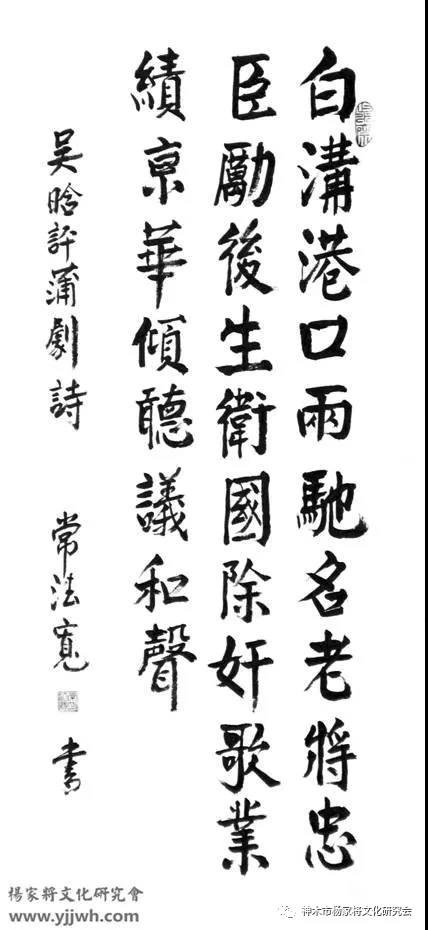 白溝港口兩馳名老將忠
臣勵後生衛國除奸歌業
績京華傾聽議和聲
吴晗評蒲劇詩 常法寬 書
楊家將文化研究會
www.yjjwh.com
神木市杨家将文化研究会